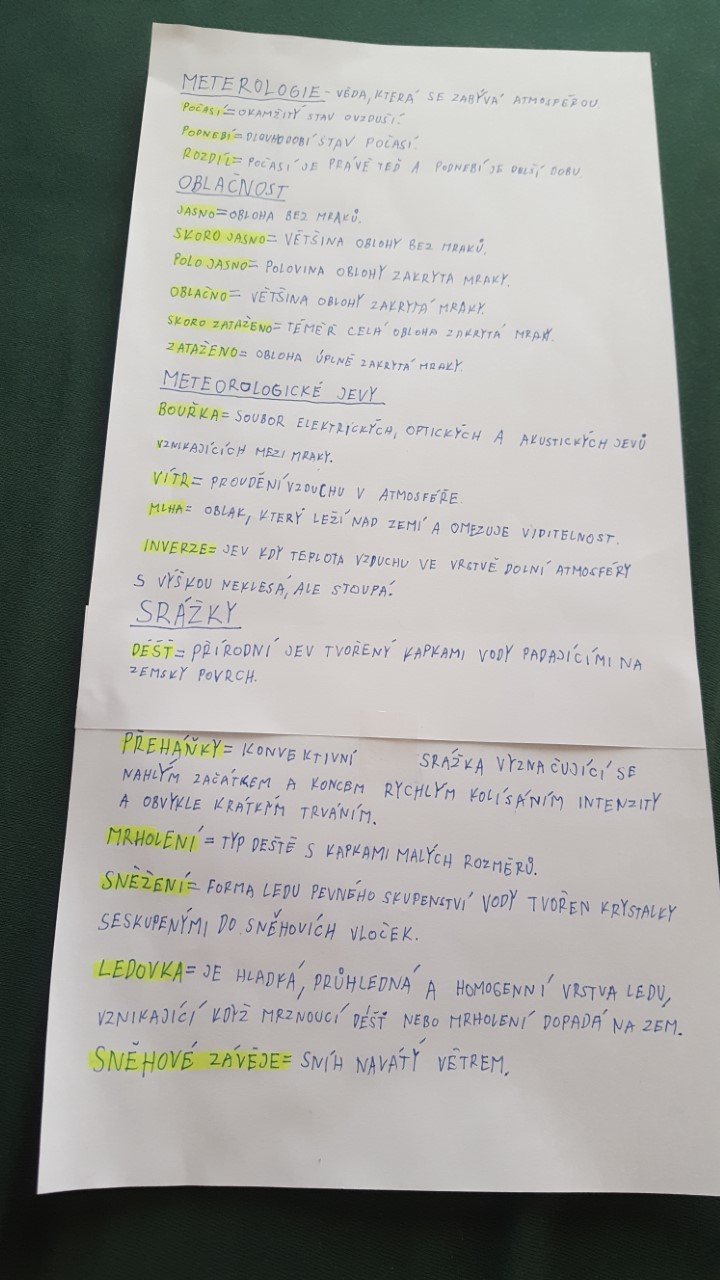 METEROLOGIE - VĚDA, KTERÁ SE ZABÝVÁ ATMOSFÉROU
POČASÍ=OKAMŽITÝ STAV OVZDUŠÍ.
PODNEBÍ=DLOUHODOBÍ STAV POČASÍ.
ROZDÍL=POČASÍ JE PRÁVĚ TEĎ A PODNEBÍ JE DELŠÍ DOBU.
OBLAČNOST
JASNO=OBLOHA BEZ MRAKŮ.
SKORO JASNO= VĚTŠINA OBLOHY BEZ MRAKŮ.
POLO JASNO= POLOVINA OBLOHY ZAKRYTA MRAKY.
OBLAČNO= VĚTŠINA OBLOHY ZAKRYTÁ MRAKY.
SKORO ZATAŽENO= TÉMĚŘ CELÁ OBLOHA ZAKRYTÁ MRAKY.
ZATAŽENO= OBLOHA ÚPLNĚ ZAKRYTÁ MRAKY.
METEOROLOGICKÉ JEVY
BOUŘKA= SOUBOR ELEKTRICKÝCH, OPTICKÝCH A AKUSTICKÝCH JEVŮ
VZNIKAJÍCÍCH MEZI MRAKY.
VÍTR= PROUDĚNÍ VZDUCHU V ATMOSFÉŘE.
MLHA= OBLAK, KTERÝ LEŽÍ NAD ZEMÍ A OMEZUJE VIDITELNOST.
INVERZE= JEV KDY TEPLOTA VZDUCHU VE VRSTVĚ DOLNÍ ATMOSFÉRY
S VÝŠKOU NEKLESÁ, ALE STOUPÁ.
SRÁŽKY
DÉŠŤ= PŘÍRODNÍ JEV TVOŘENÝ KAPKAMI VODY PADAJÍCÍMI NA
ZEMSKÝ POVRCH.
PŘEHÁŇKY= KONVEKTIVNÍ SRÁŽKA VYZNAČUJÍCÍ SE
NAHLÝM ZAČÁTKEM A KONCEM RYCHLÝM KOLÍSÁNÍM INTENZITY
A OBVYKLE KRÁTKÝM TRVÁNÍM.
MRHOLENÍ= TYP DEŠTĚ S KAPKAMI MALÝCH ROZMĚRŮ.
SNĚŽENÍ= FORMA LEDU PEVNÉHO SKUPENSTVÍ VODY TVOŘEN KRYSTALKY
SESKUPENÝMI DO SNĚHOVÍCH VLOČEK.
LEDOVKA= JE HLADKÁ, PRŮHLEDNÁ A HOMOGENNÍ VRSTVA LEDU,
VZNIKAJÍCÍ KDYŽ MRZNOUCÍ DÉŠŤ NEBO MRHOLENÍ DOPADÁ NA ZEM.
SNĚHOVÉ ZÁVĚJE= SNÍH NAVÁTÝ VĚTREM.